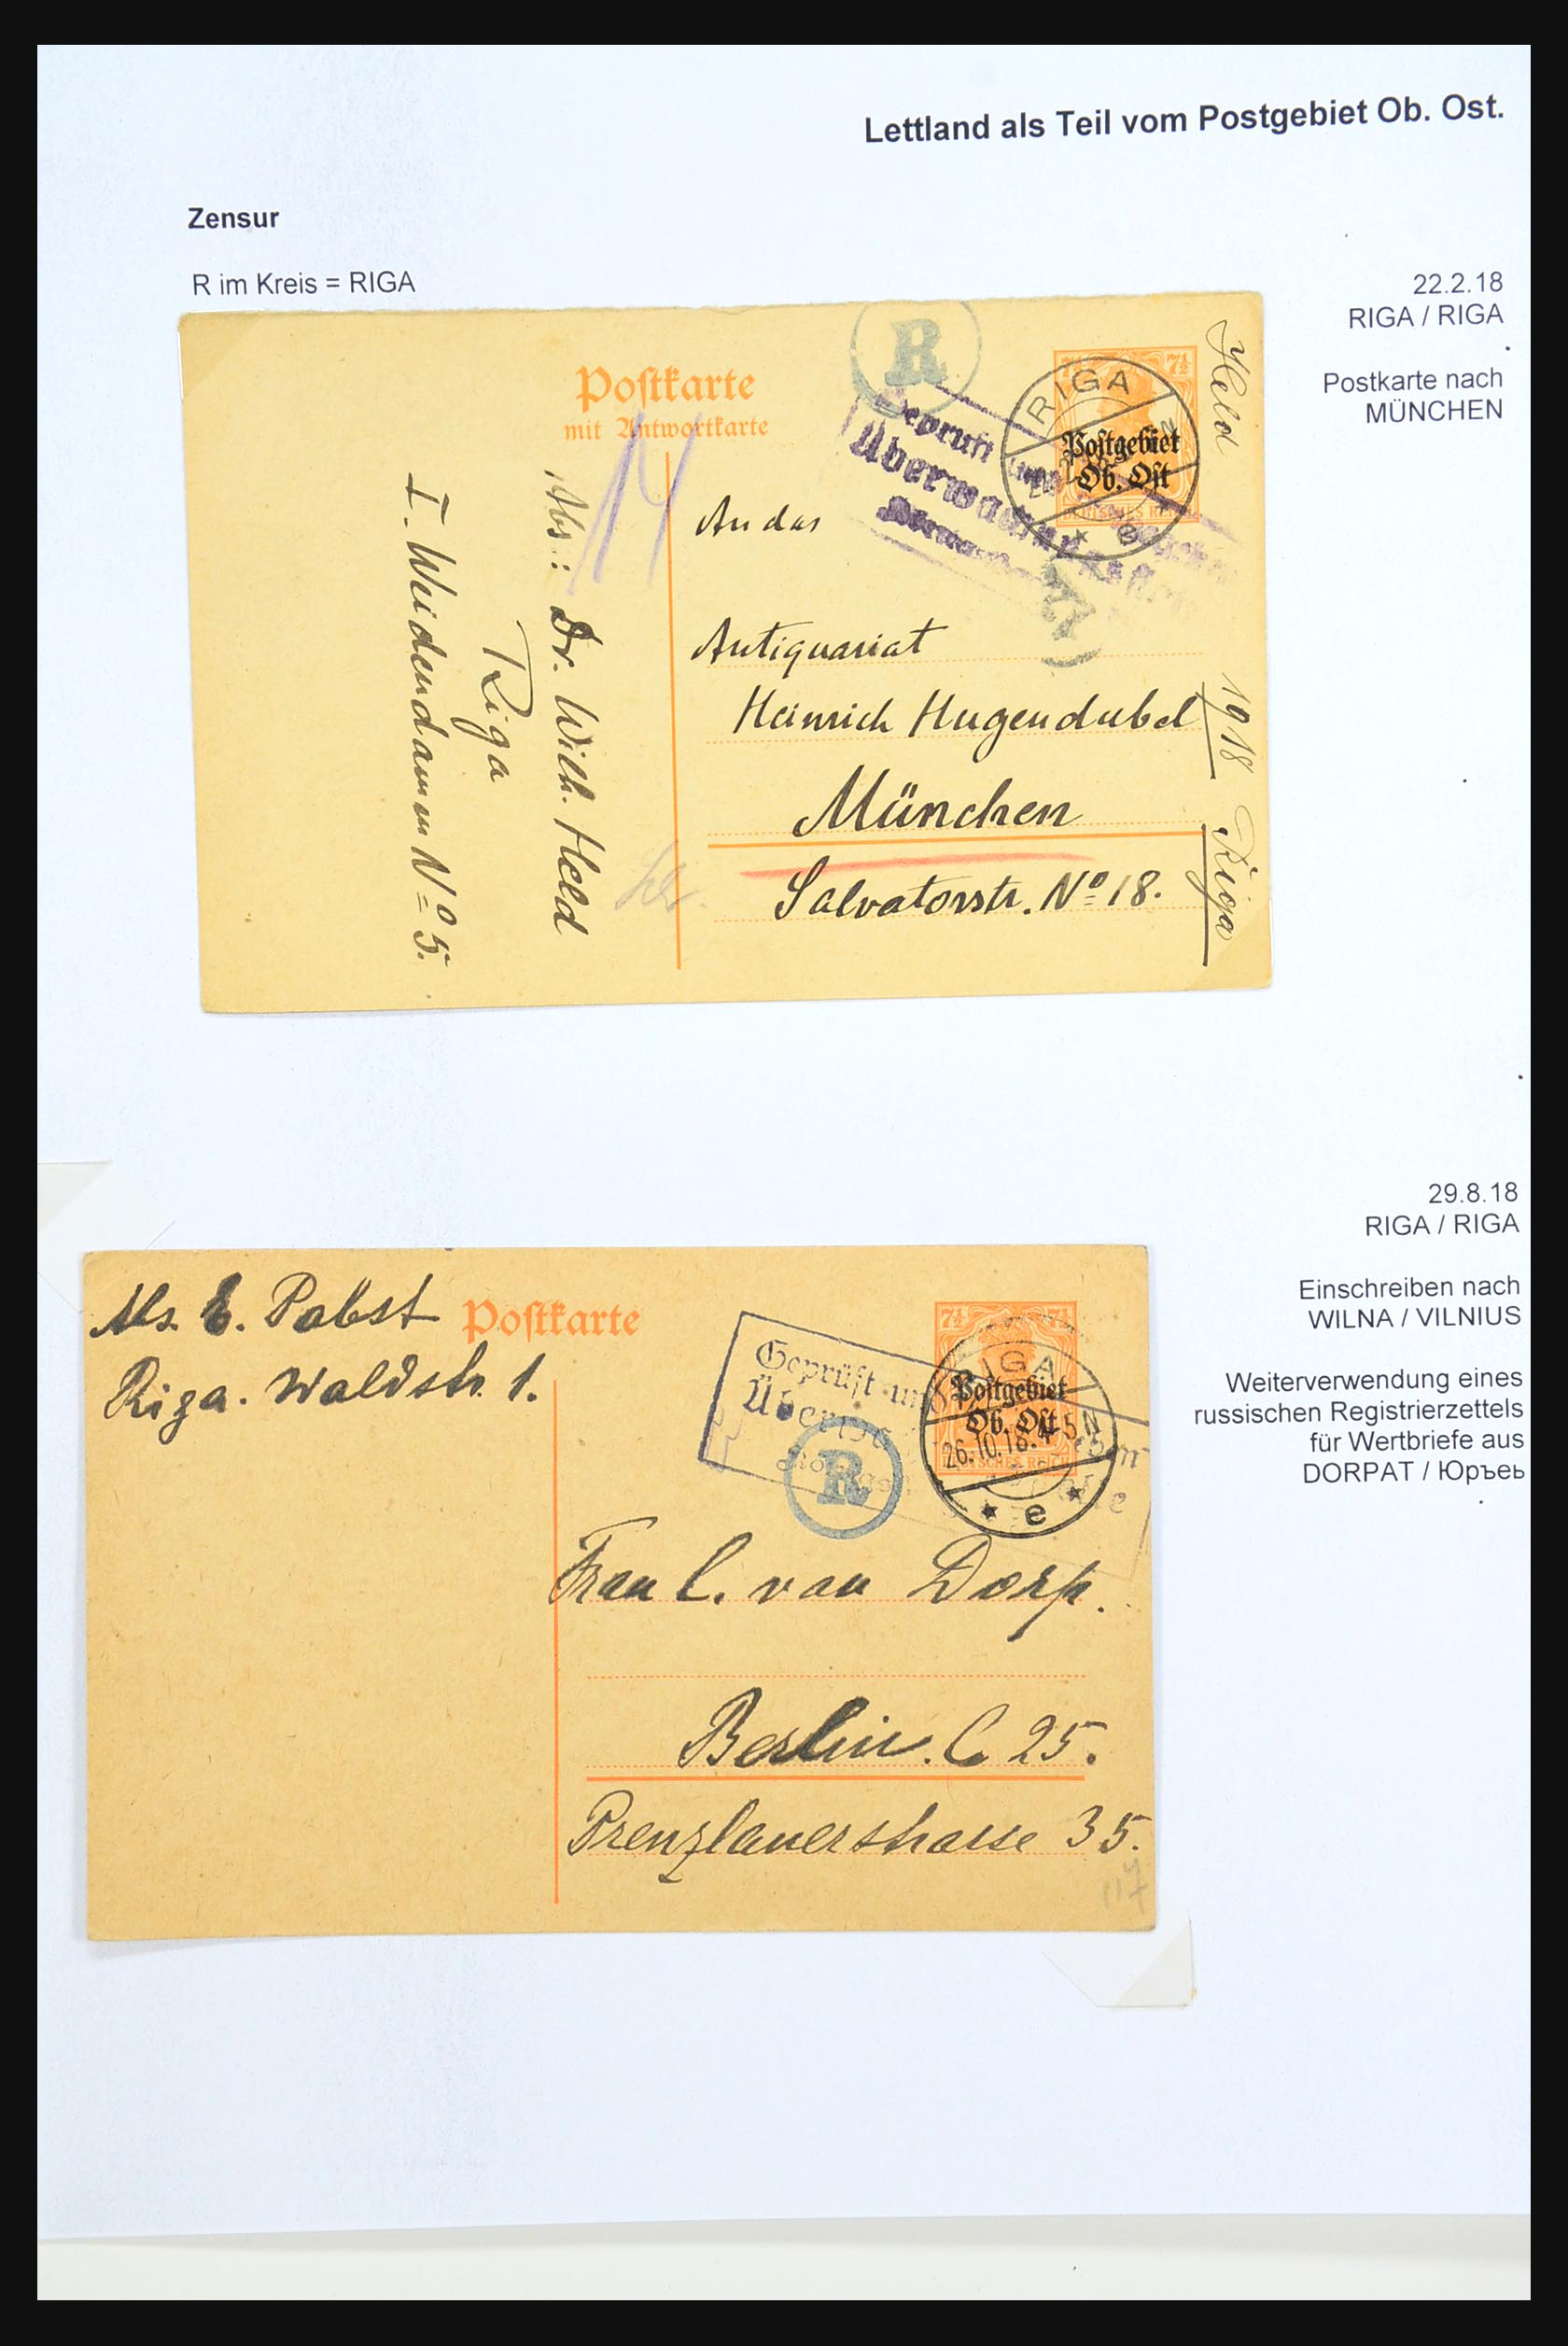 Lettland als Teil vom Postgebiet Ob. Ost.
Zensur
R im Kreis = RIGA
22.2.18
RIGA / RIGA
Postkarte nach
MÜNCHEN
Postkarte
mit Antwortkarte
R
7½ 7½
RIGA
Postgebiet
Ob. Ost
DEUTSCHES REICH
e
Geprüft und
Überwachungsstelle
An das
Antiquariat
Heinrich Hugendubel
München
Salvatorstr. Nº 18.
Abs.: Dr. Wilh. Held
Riga
I. Weidendamm Nº 5.
Held
1918
Riga
29.8.18
RIGA / RIGA
Einschreiben nach
WILNA / VILNIUS
Weiterverwendung eines
russischen Registrierzettels
für Wertbriefe aus
DORPAT / Юръеь
Abs. E. Pabst
Riga. Waldstr. 1.
Postkarte
7½ 7½
RIGA
Postgebiet
Ob. Ost
26.10.18. 4-5 N
DEUTSCHES REICH
e
Geprüft und
R
Frau C. van Dorp.
Berlin. C 25.
Prenzlauerstrasse 35.